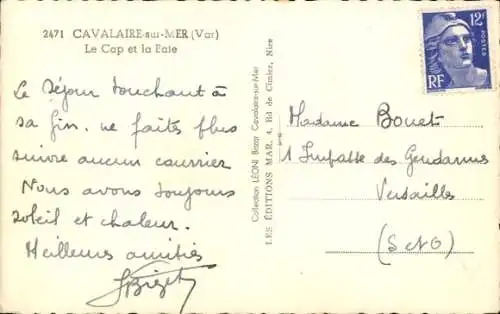 2471 CAVALAIRE-sur-MER (Var)
Le Cap et la Baie
Le séjour touchant à
sa fin, ne faites plus
suivre aucun courrier
Nous avons toujours
soleil et chaleur.
Meilleures amitiés
Collection LÉONI Bazar Cavalaire-sur-Mer
LES ÉDITIONS MAR, 4, Bd de Cimiez, Nice
12F
POSTES
RF
Madame Bouet
1 Impasse des Gendarmes
Versailles
(S&O)